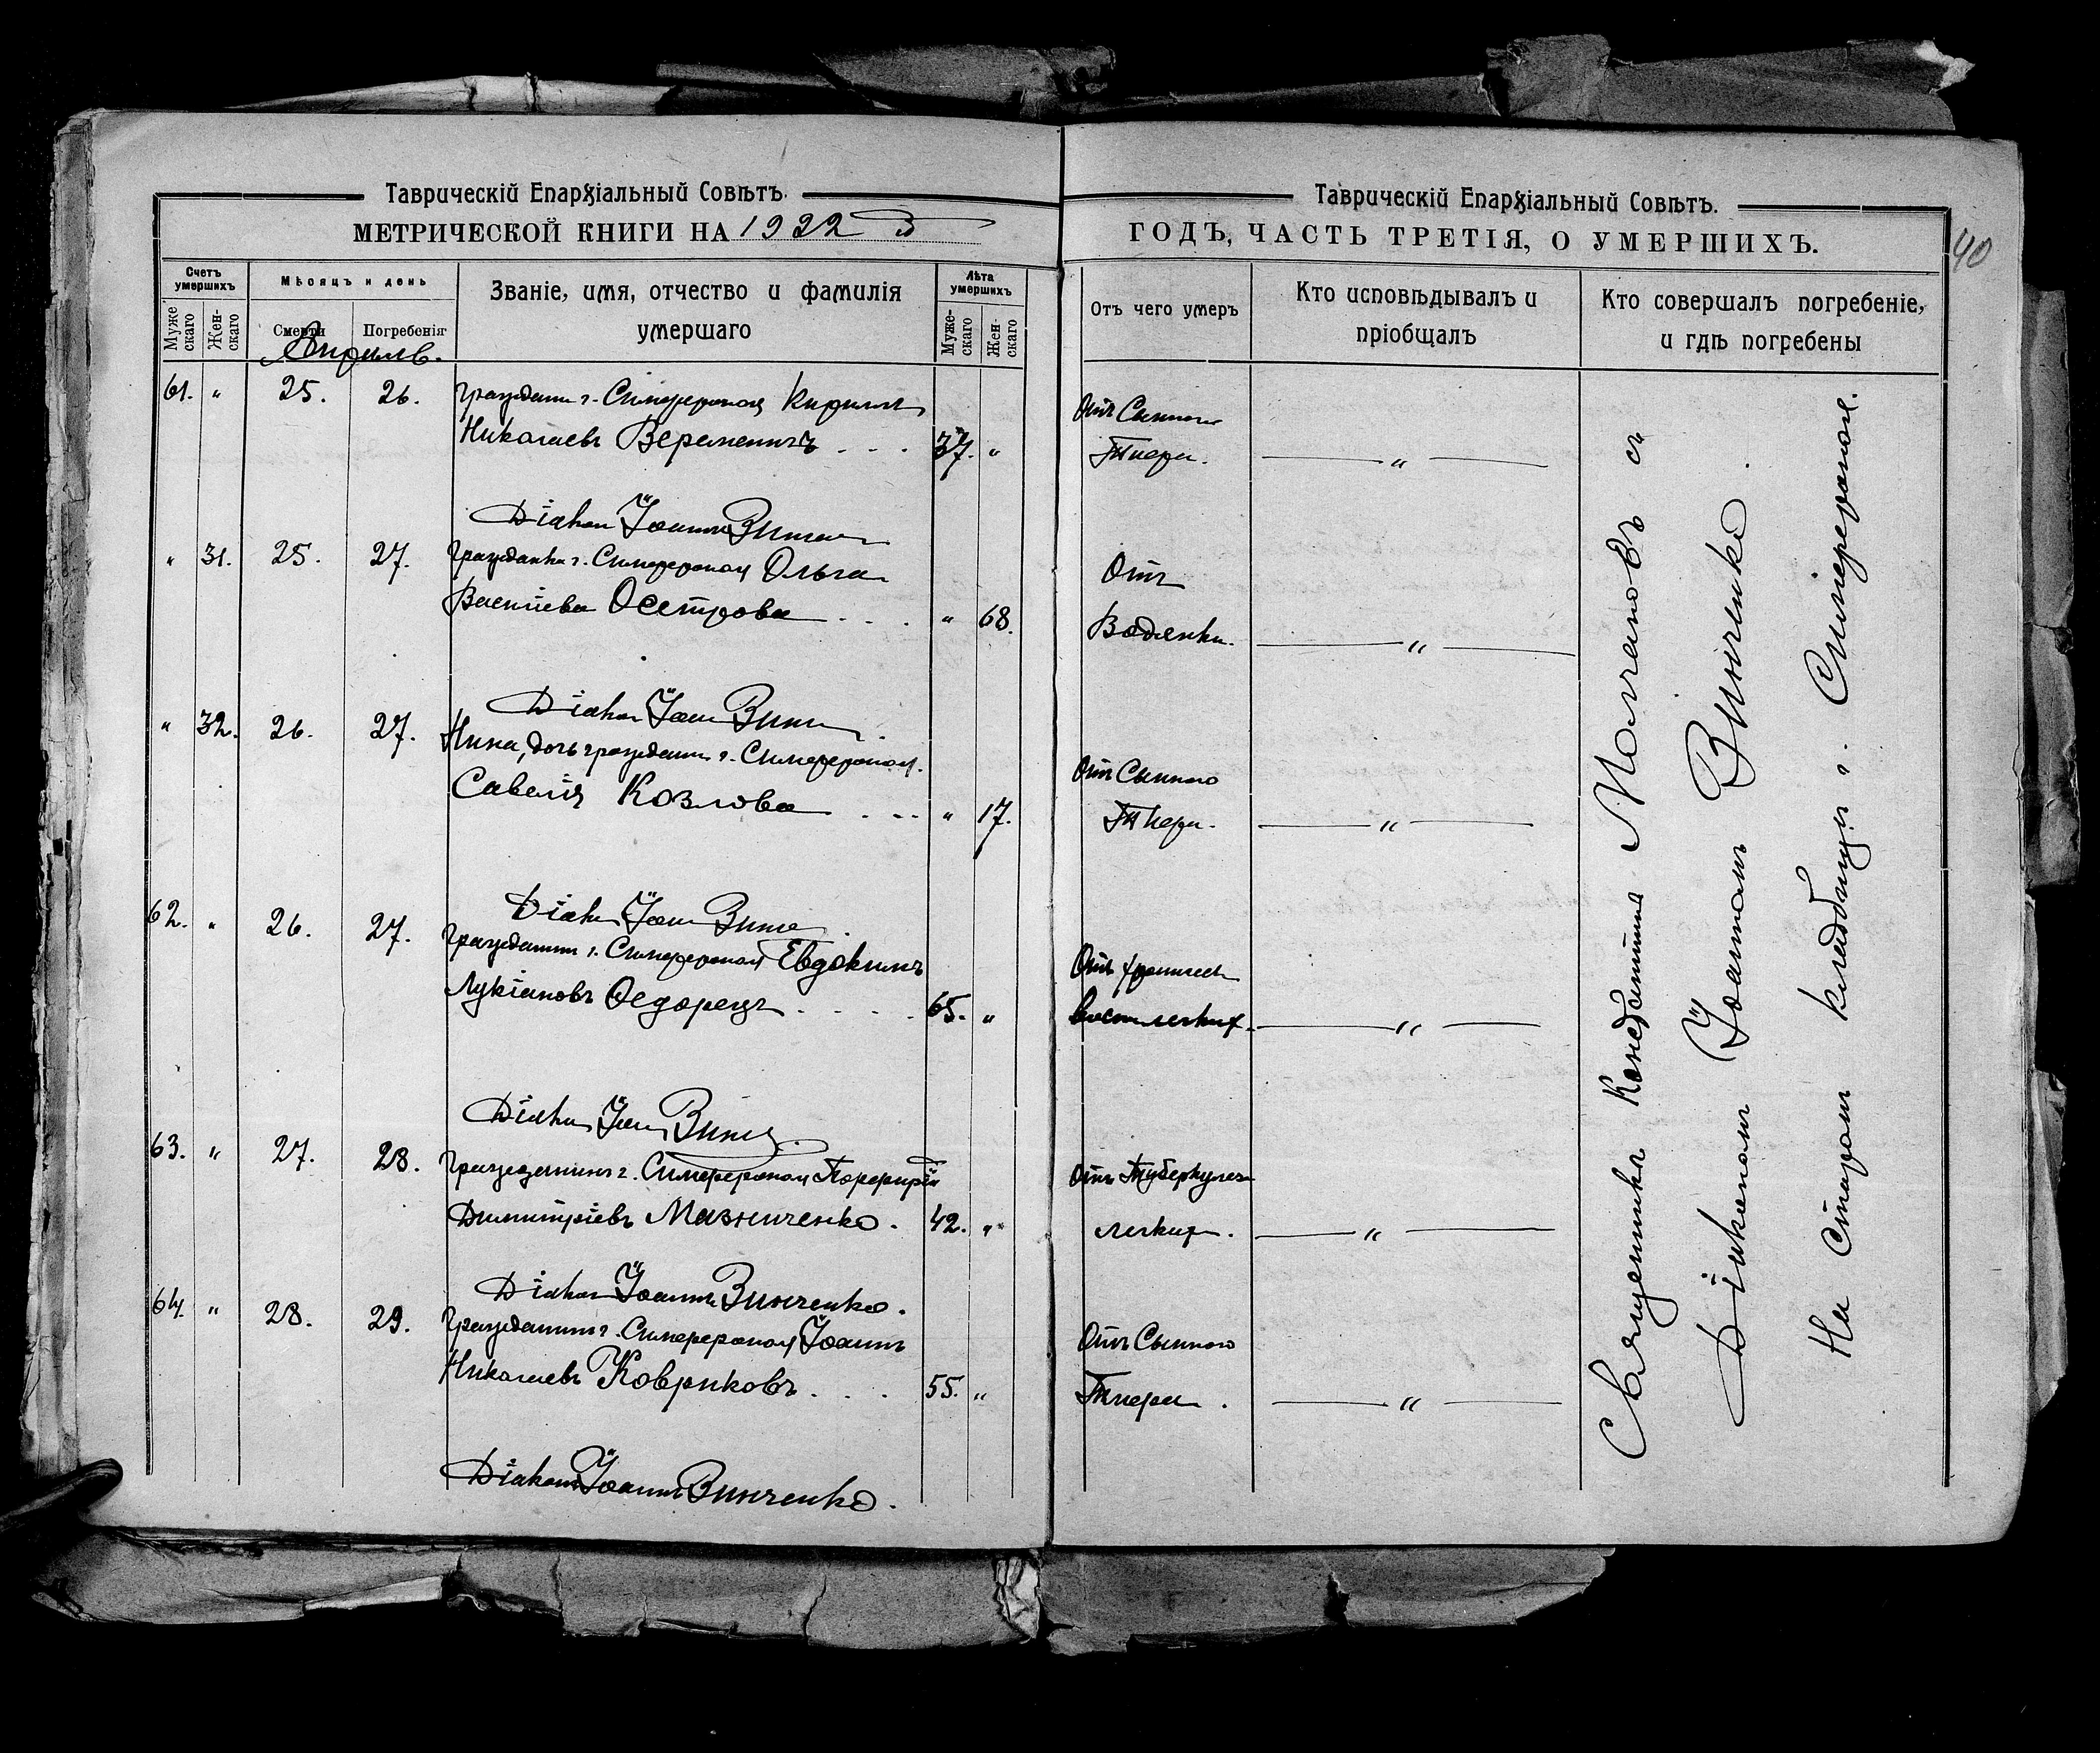 Таврическій Епархіальный Совѣтъ.
МЕТРИЧЕСКОЙ КНИГИ НА 1922
Счетъ умершихъ
Мѣсяцъ и день
Званіе, имя, отчество и фамилія умершаго
Лѣта умершихъ
Мужескаго
Женскаго
Смерти
Погребенія
Мужескаго
Женскаго
Апрѣль.
61. " 25. 26. Гражданин г. Симферополя Кириллъ
Николаевъ Веременичъ . . . 37. "
Діакон Іоаннъ Зинч
" 31. 25. 27. Гражданка г. Симферополя Ольга
Васильева Осетрова . . . " 68.
Діакон Іоан Зинч
" 32. 26. 27. Нина, дочь граждан г. Симферополя
Савелія Козлова . . . " 17.
Діакон Іоан Зинч
62. " 26. 27. Гражданин г. Симферополя Евдокимъ
Лукіановъ Ѳедорецъ . . . . 65. "
Діакон Іоан Зинч
63. " 27. 28. Гражданинъ г. Симферополя Порфирій
Димитріевъ Мазниченко. 42. "
Діакон Іоаннъ Зинченко.
64. " 28. 29. Гражданинъ г. Симферополя Іоаннъ
Николаевъ Ковриковъ . . . 55. "
Діаконъ Іоаннъ Зинченко.
Таврическій Епархіальный Совѣтъ.
ГОДЪ, ЧАСТЬ ТРЕТІЯ, О УМЕРШИХЪ.
40
Отъ чего умеръ
Кто исповѣдывалъ и пріобщалъ
Кто совершалъ погребеніе, и гдѣ погребены
Отъ Сыпного
Тифа. "
Отъ
Водянки. "
Отъ Сыпного
Тифа. "
Отъ хроническ
воспал легких. "
Отъ Туберкулеза
легких. "
Отъ Сыпного
Тифа. "
Священникъ Константинъ Молчановъ съ
Діакономъ Іоанномъ Зинченко.
На Старомъ кладбищѣ г. Симферополя.